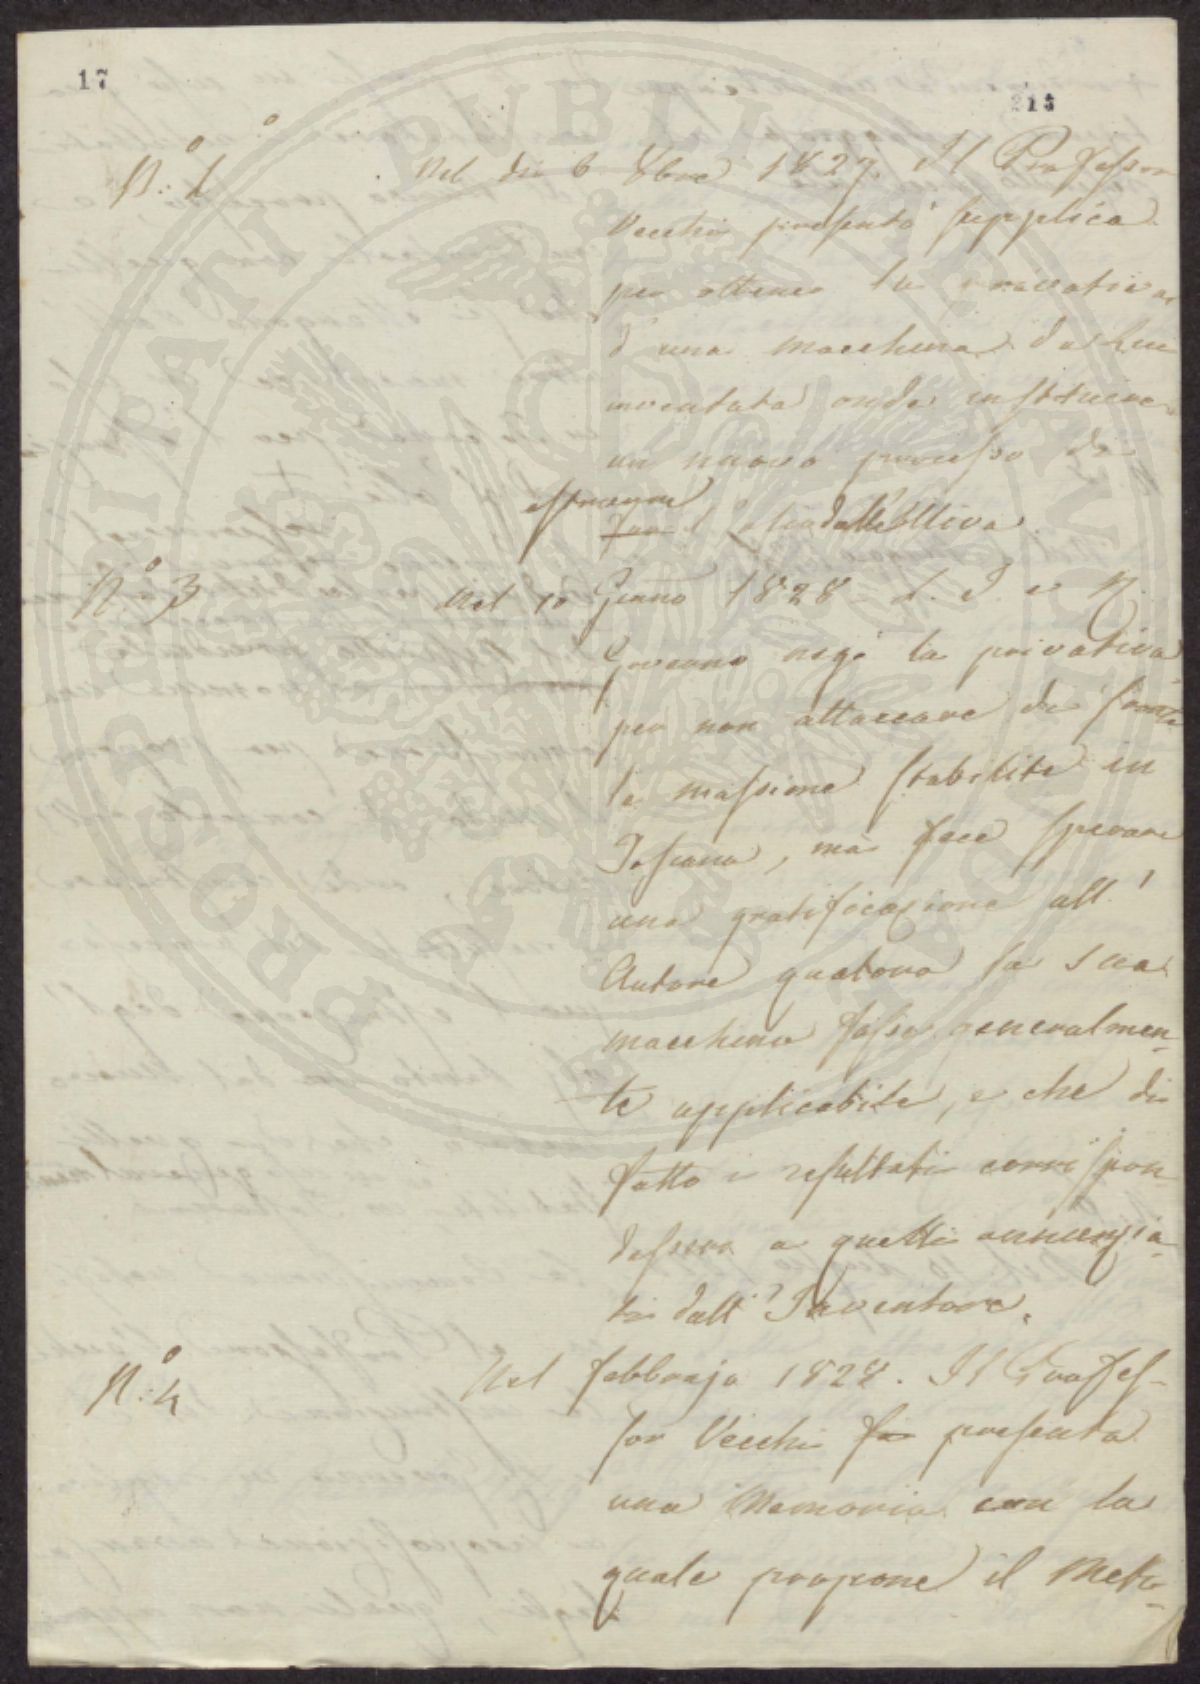 17
213
N.º 1º Nel dì 6. 8bre 1827. Il Professor
Vecchi presentò supplica
per ottener la privativa
d' una macchina da Lui
inventata onde instituire
un nuovo processo di
estrarre
fare l' olio dall'Uliva
N.º 3 Nel 10 Genno 1828 L. I. e R.
Governo negò la privativa
per non attaccare di fronte
le massime stabilite in
Toscana, ma fece sperare
una gratificazione all'
Autore qualora la sua
macchina fosse generalmen-
te applicabile, e che di
fatto i resultati corrispon-
dessero a quelli annunzia-
ti dall' Inventore.
N.º 4 Nel febbrajo 1828. Il Profes-
sor Vecchi fa presenta
una Memoria con la
quale propone il Meto-
PROSPERITATI PUBLICAE AUGENDAE